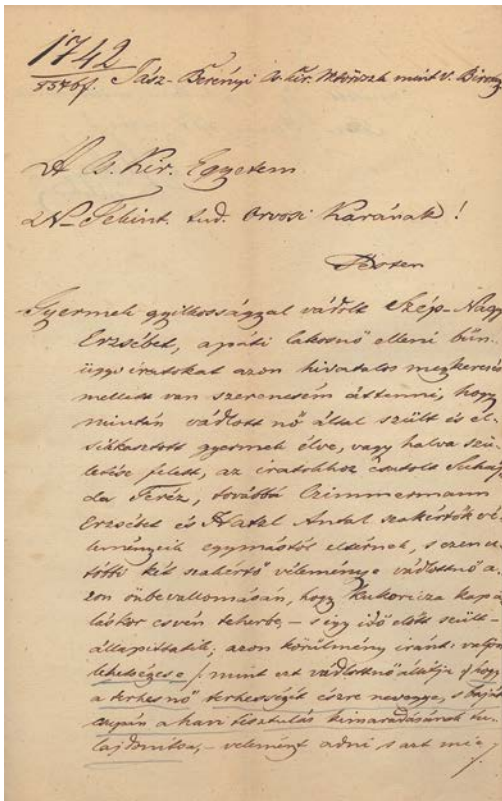 1742
Jász-Berényi cs. kir. mint v. Biróság
A Cs. Kir. Egyetem
Tekint. tud. Orvosi Karának!
Pesten
Gyermek gyilkossággal vádolt Szép-Nagy
Erzsébet, apáti lakosnő elleni bűn-
ügyi iratokat azon hivatalos megkeresés
mellett van szerencsém áttenni, hogy
miután vádlott nő által szült és el-
sikkasztott gyermek élve, vagy halva szü-
letése felett, az iratokhoz csatolt
Teréz, továbbá Czimmermann
Erzsébet és Antal szakértők vé-
leményeik egymástól eltérnek, s ezenel
tötti két szakértő véleménye vádlottnő a-
zon önbevallomásán, hogy Kukoricza kapá
láskor esvén teherbe, – s így idő előtt szült –
állapittatik; azon körülmény iránt: valjon
lehetséges e /: mint ezt vádlottnő állítja :/ hogy
a terhes nő terhességét észre nevegye, s baját
csupán a havi tisztulás kimaradásának tu-
lajdonítsa, – véleményt adni s azt mie